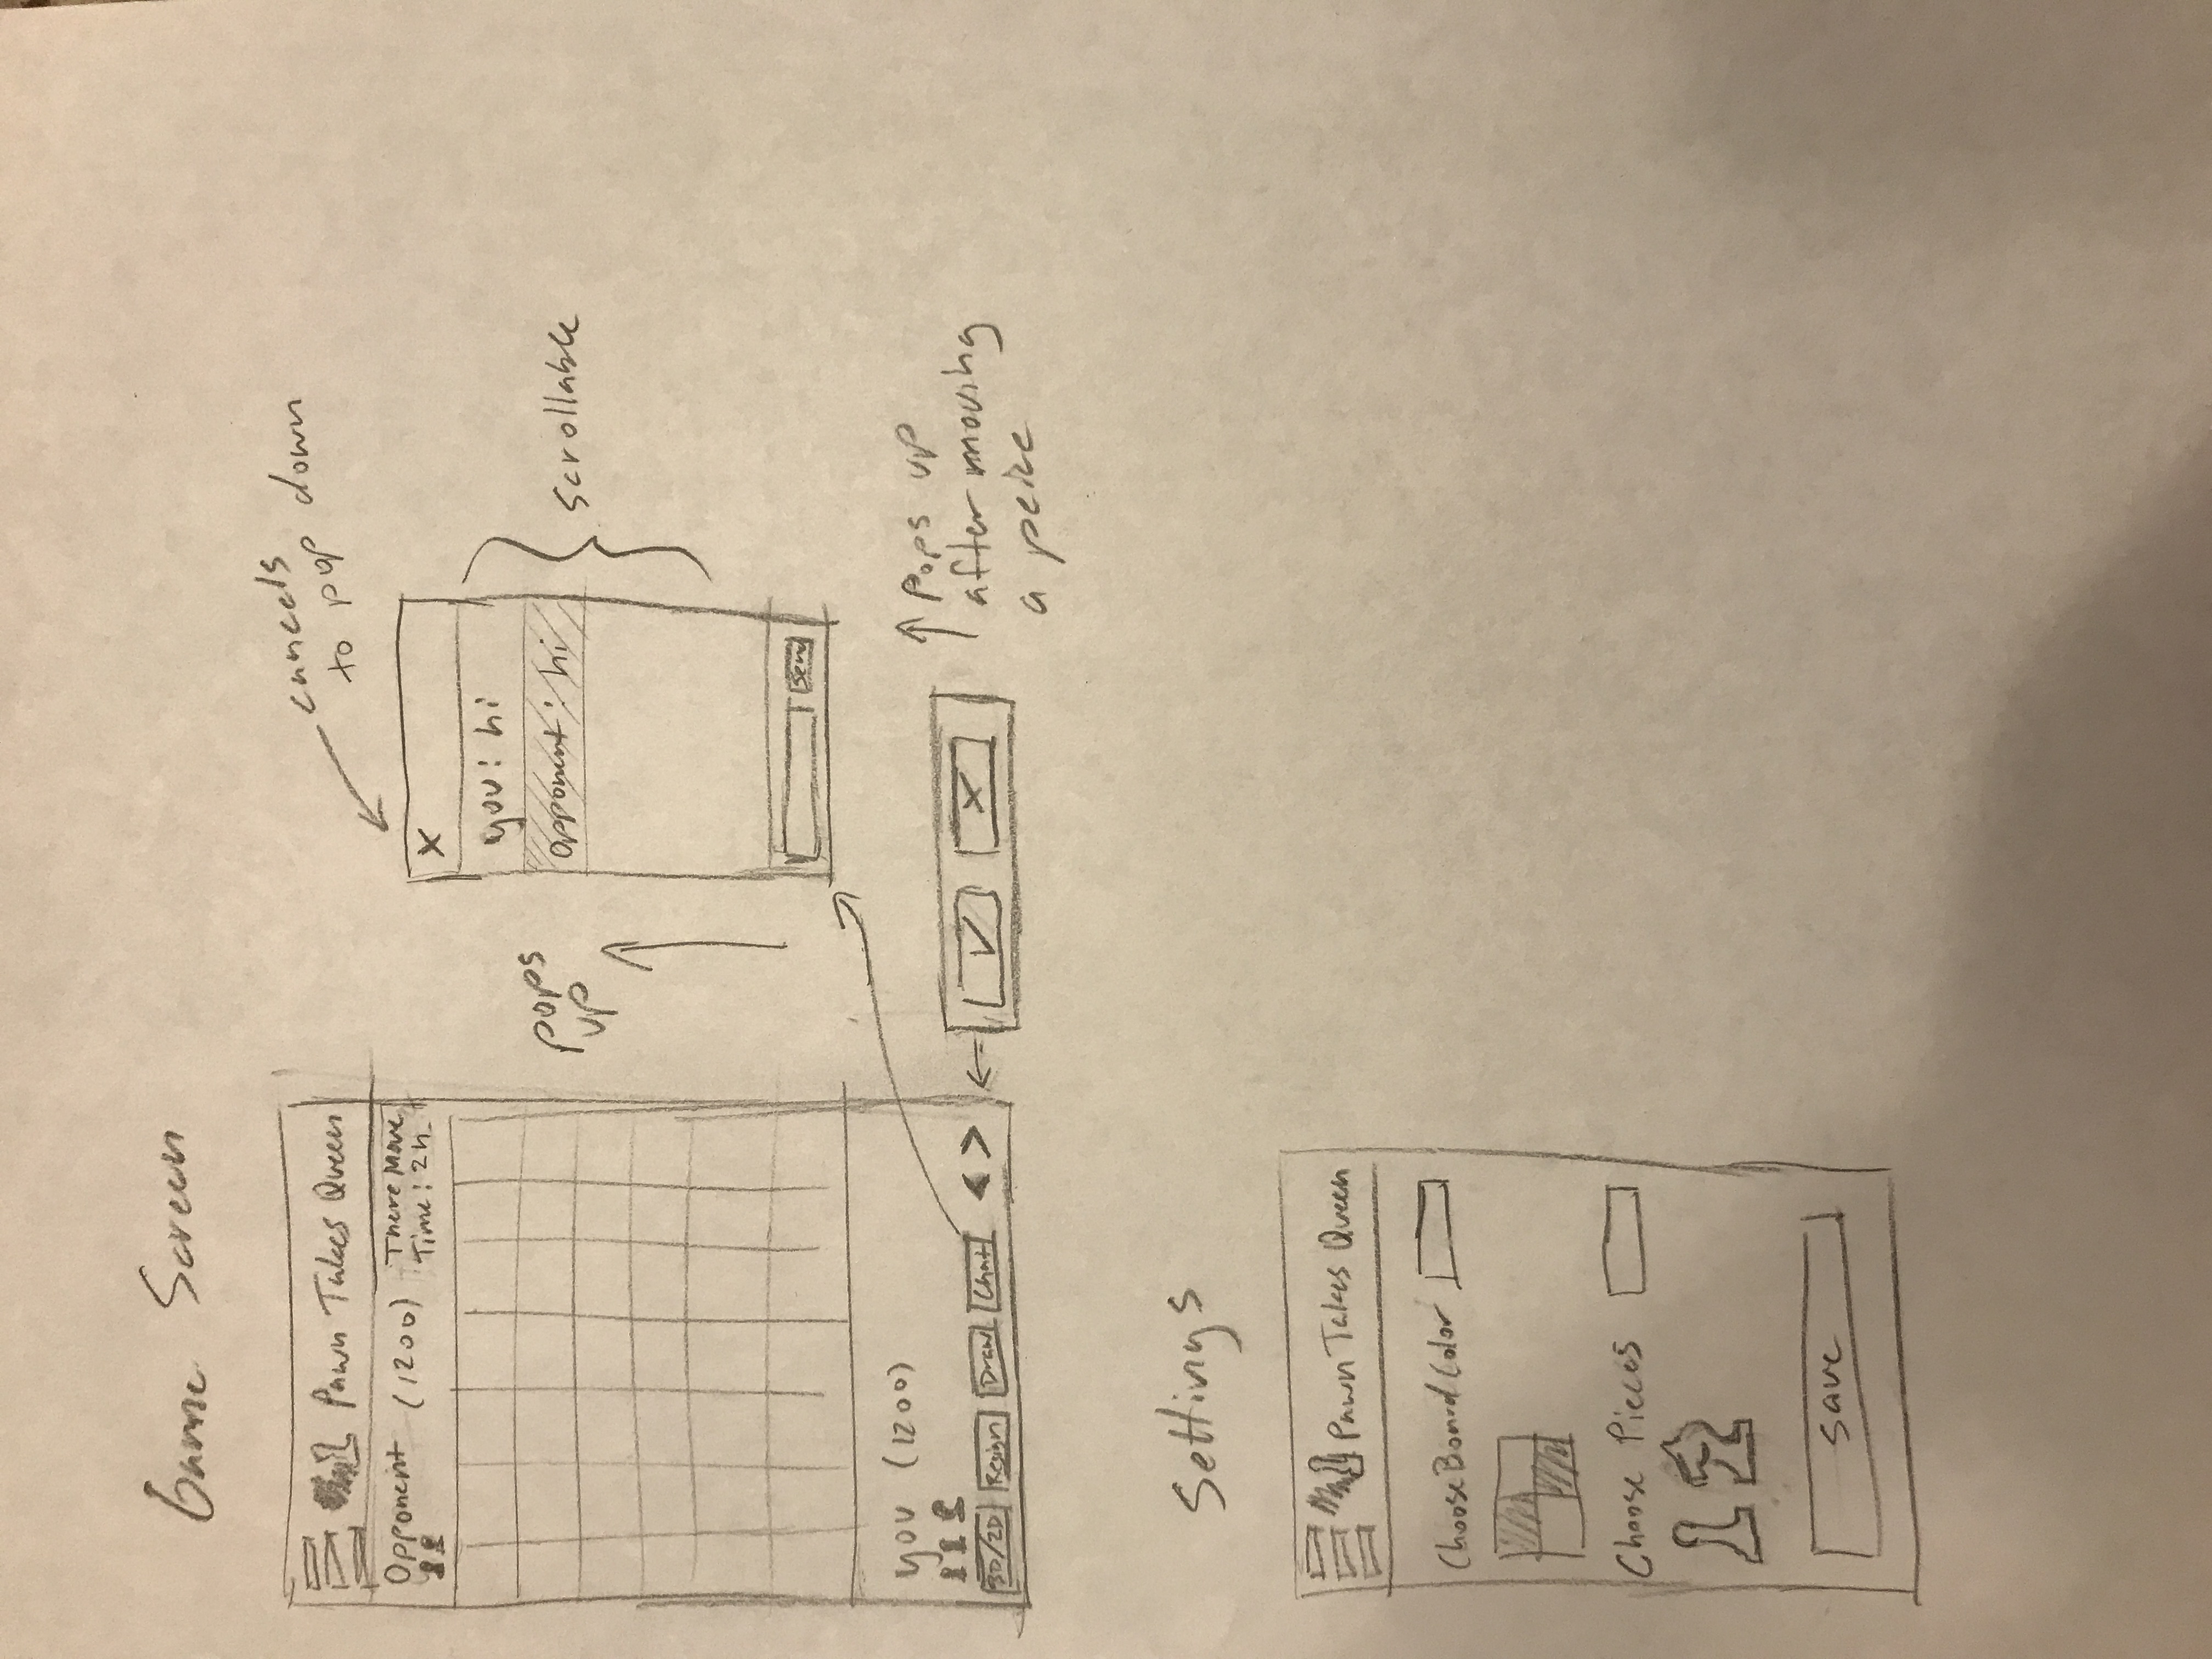 Game Screen
Pawn Takes Queen
Opponent (1200) There Move
Time: 2h.
you (1200)
3D/2D Resign Draw Chat < >
pops
up
cancels
to pop down
X
you: hi
Opponent: hi
Send
scrollable
✓ X
Pops up
after moving
a peice
Settings
Pawn Takes Queen
Choose Board Color
Choose Pieces
Save